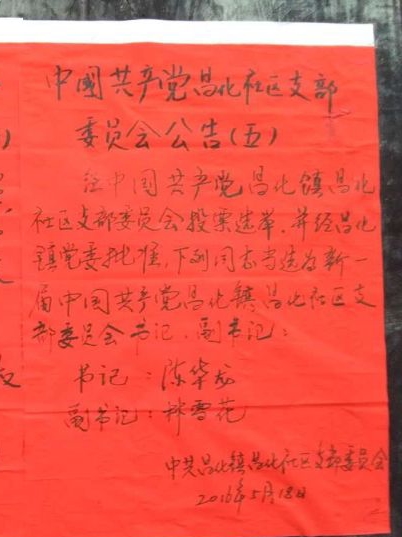 中國共产党昌化社区支部
委员会公告(五)
经中国共产党昌化镇昌化
社区支部委员会投票选举,并经昌化
镇党委批准,下列同志当选为新一
届中国共产党昌化镇昌化社区支
部委员会书记、副书记:
书记:陈华龙
副书记:雪花
中共昌化镇昌化社区支部委员会
2016年5月18日